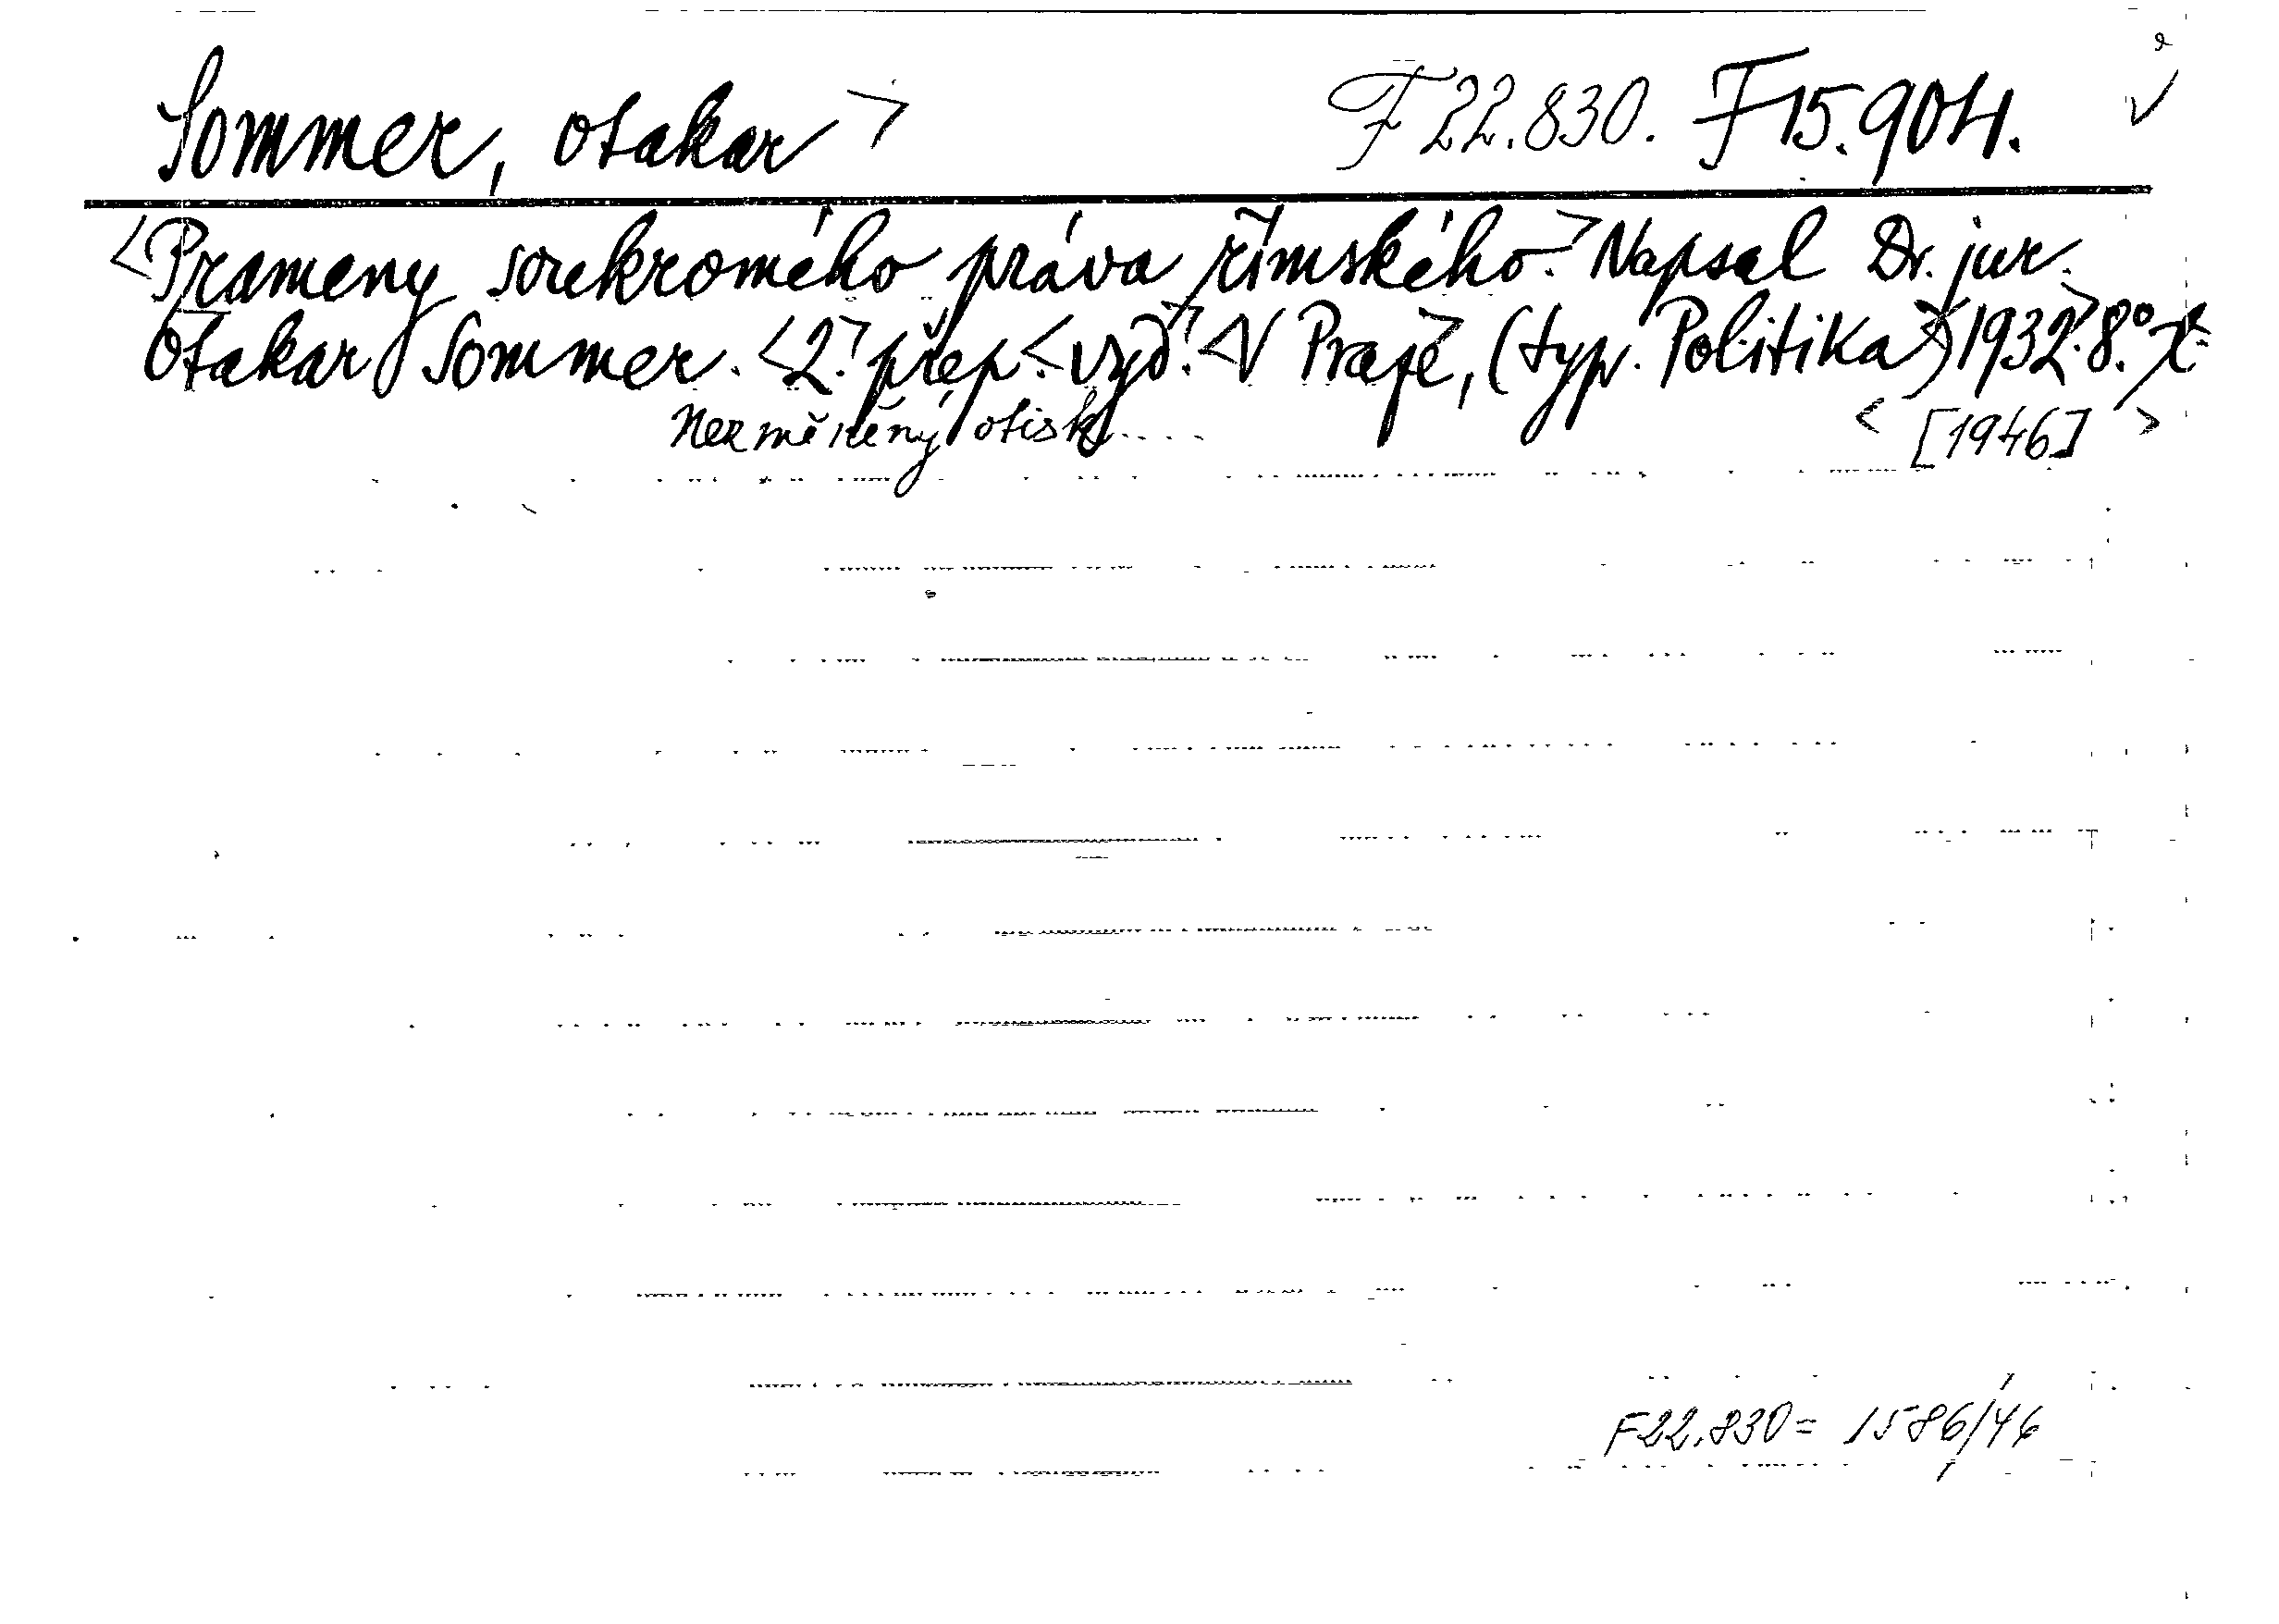 Sommer, Otakar> F 22.830. F 15.904.
<Prameny soukromého práva římského.> Napsal Dr. jur.
Otakar Sommer. <2.> přep. <vyd.> <V Praze, (typ. Politika>) 1932.> 8°.
Nezměněný otisk.... < [1946] >
F 22.830 = 1586/46